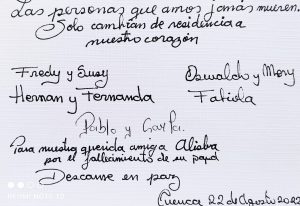 Las personas que amos jamás mueren.
Solo cambian de residencia a
nuestro corazón
Fredy y Susy
Oswaldo y Mery
Hernan y Fernanda
Fabiola
Pablo y Carla.
Para nuestra querida amiga Alisba
por el fallecimiento de su papá
Descanse en paz
Cuenca 22 de Agosto